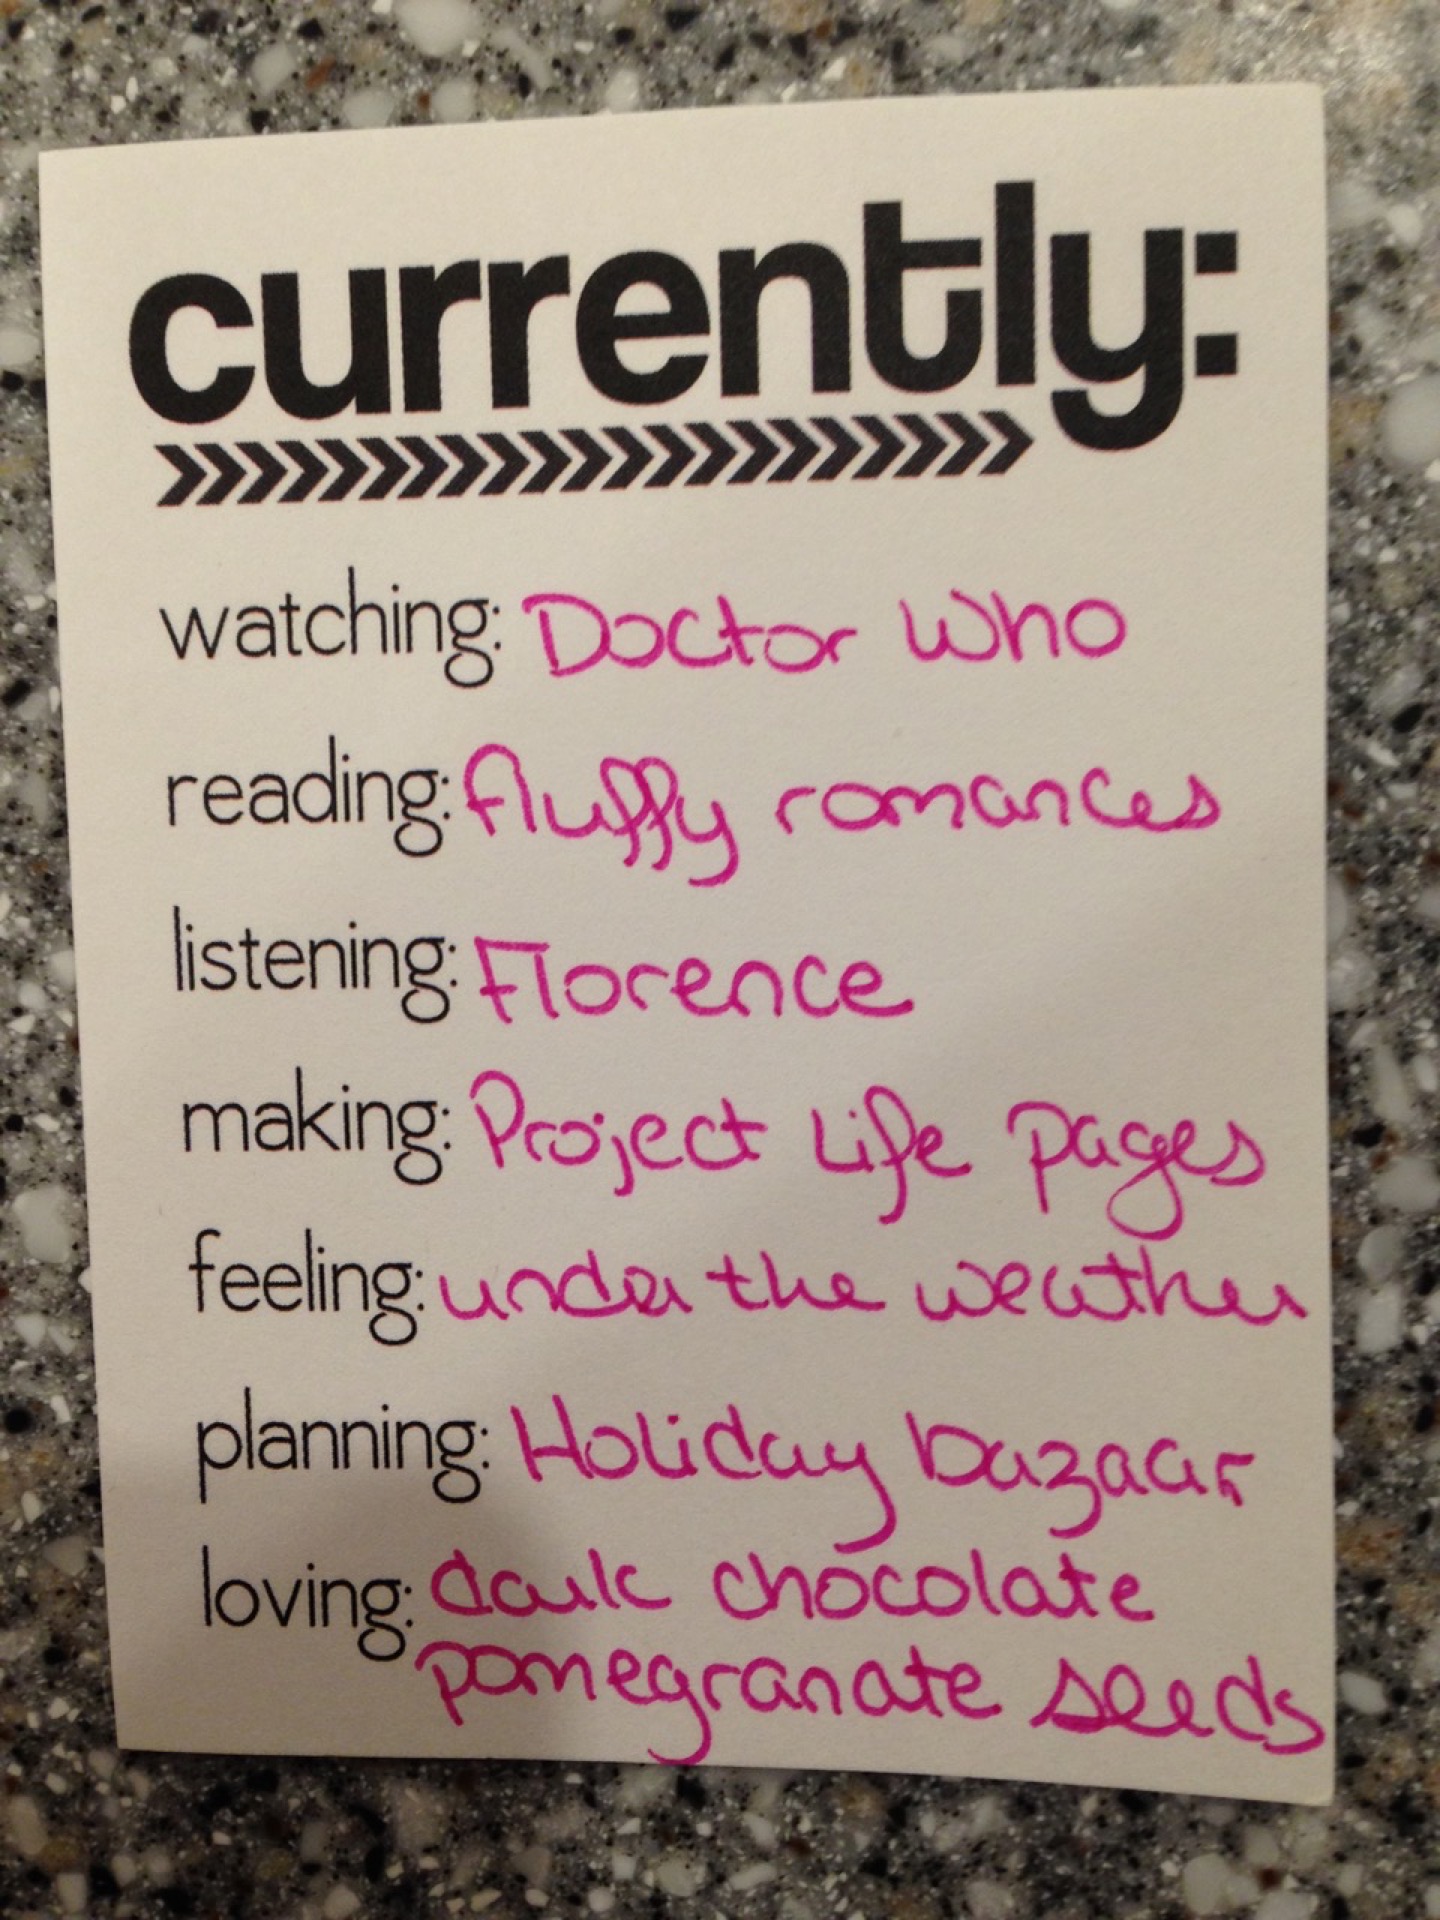 currently:
watching: Doctor Who
reading: fluffy romances
listening: Florence
making: Project Life pages
feeling: under the weather
planning: Holiday bazaar
loving: dark chocolate
pomegranate seeds